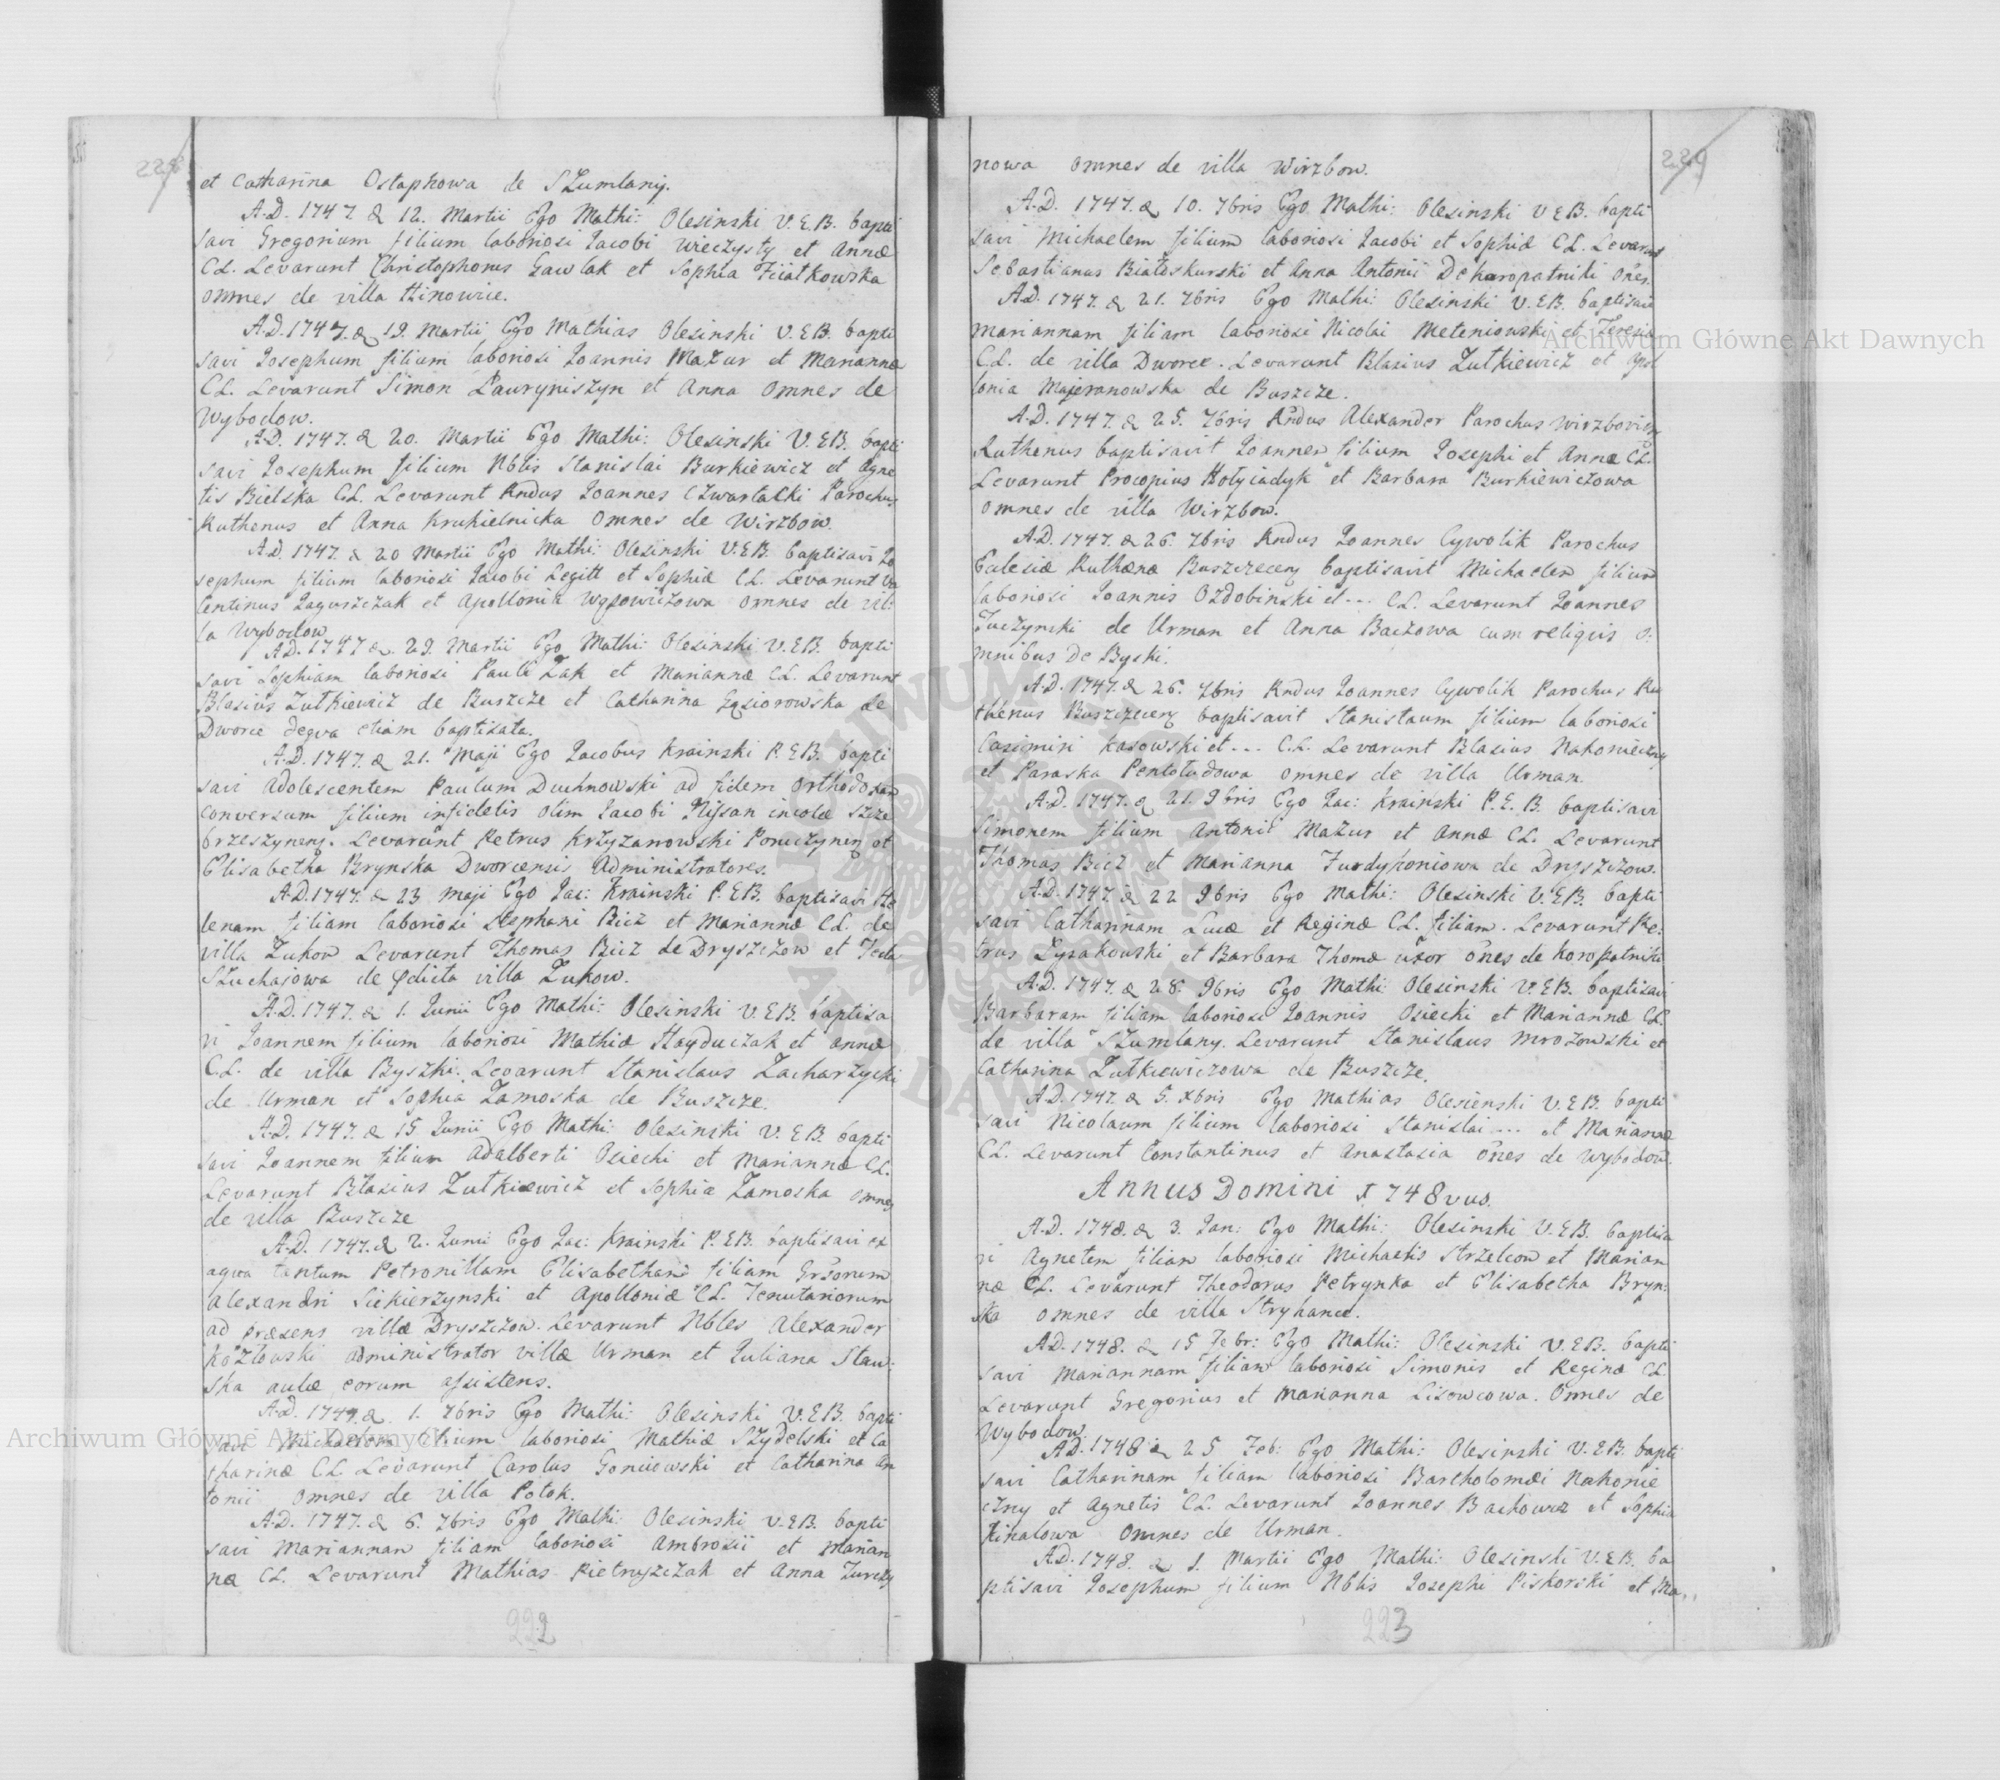 et Catharina Ostaphowa de Szumlany.
A.D. 1747. d. 12. Martii Ego Mathi: Olesinski V.E.B. bapti
savi Gregorium filium laboriosi Jacobi Wieczysty et Annæ
CL. Levarunt Christophorus Gawlak et Sophia
omnes de villa Hinowice.
A.D. 1747. d. 19. Martii Ego Mathias Olesinski V.E.B. bapti
savi Josephum filium laboriosi Joannis Mazur et Mariannæ
CL. Levarunt Simon Lauryniszyn et Anna omnes de
Wybodow.
A.D. 1747. d. 20. Martii Ego Mathi: Olesinski V.E.B. bapti
savi Josephum filium Nblis Stanislai Burkiewicz et Agne
tis Bielska CL. Levarunt Rndus Joannes Czwartacki Parochus
Ruthenus et Anna Krukielnicka omnes de Wirzbow.
A.D. 1747. d. 20 Martii Ego Mathi: Olesinski V.E.B. baptisavi Jo
sephum filium laboriosi Jacobi Legitt et Sophiæ CL. Levarunt Va
lentinus Jaguszczak et Apollonia omnes de vil:
la Wybodow
A.D. 1747 d. 29. Martii Ego Mathi: Olesinski V.E.B. bapti
savi Sophiam laboriosi Pauli Zak et Mariannæ CL. Levarunt
Blasius Zutkiewicz de Buszcze et Catharina Gąsiorowska de
Dworce deqva etiam baptisata.
A.D. 1747. d. 21. Maji Ego Jacobus Krainski P.E.B. bapti
savi adolescentem Paulum Duchnowski ad fidem orthodoxam
conversum filium infidelis olim Jacobi Nissan incolæ Szcze
brzeszynen. Levarunt Petrus Krzyzanowski et
Elisabetha Brynska Dworcensis Administratores.
A.D. 1747. d. 23 Maji Ego Jac: Krainski P.E.B. baptisavi He
lenam filiam laboriosi Stephani Bicz et Mariannæ CL. de
villa Zukow Levarunt Thomas Bicz de Dryszczow et Tecla
Szuchajowa de villa Zukow.
A.D. 1747. d. 1. Junii Ego Mathi: Olesinski V.E.B. baptisa
vi Joannem filium laboriosi Mathiæ Hayduczak et Annæ
CL. de villa Byszki. Levarunt Stanislaus Zacharzycki
de Urman et Sophia Zamoska de Buszcze.
A.D. 1747. d. 15 Junii Ego Mathi: Olesinski V.E.B. bapti
savi Joannem filium Adalberti Osiecki et Mariannæ CL.
Levarunt Blasius Zutkiewicz et Sophia Zamoska omnes
de villa Buszcze
A.D. 1747. d. 2. Junii Ego Jac: Krainski P.E.B. baptisavi ex
aqva tantum Petronillam Elisabetham filiam Grsorum
Alexandri Siekierzynski et Apolloniæ CL. Tenutariorum
ad præsens villæ Dryszczow. Levarunt Nbles Alexander
Kozlowski administrator villæ Urman et Juliana Staw:
ska aulæ eorum assistens.
A.D. 1747. d. 1. 7bris Ego Mathi: Olesinski V.E.B. bapti
savi Michaelem filium laboriosi Mathiæ Szydelski et Ca
tharinæ CL Levarunt Carolus Gonciowski et Catharina An
tonii omnes de villa Potok.
A.D. 1747. d. 6. 7bris Ego Mathi: Olesinski V.E.B. bapti
savi Mariannam filiam laboriosi Ambrosii et Marian
næ CL. Levarunt Mathias Pietryszczak et Anna
222
nowa omnes de villa Wirzbow.
A.D. 1747. d. 10. 7bris Ego Mathi: Olesinski V.E.B. bapti
savi Michaelem filium laboriosi Jacobi et Sophiæ CL. Levarunt
Sebastianus Białoskurski et Anna Antonii De Koropatniki ones.
A.D. 1747. d. 21. 7bris Ego Mathi: Olesinski V.E.B. baptisavi
Mariannam filiam laboriosi Nicolai Meteniowski et Teresiæ
CL. de villa Dworce. Levarunt Blasius Zutkiewicz et Apol
lonia Majeranowska de Buszcze.
A.D. 1747. d. 25. 7bris Rndus Alexander Parochus Wirzbovien
Ruthenus baptisavit Joannem filium Josephi et Annæ CL.
Levarunt Procopius Hołyiadyk et Barbara Burkiewiczowa
omnes de villa Wirzbow.
A.D. 1747. d. 26. 7bris Rndus Joannes Cywolik Parochus
Eclesiæ Ruthenæ Buszczecen baptisavit Michaelem filium
laboriosi Joannis Ozdobinski et --- CL. Levarunt Joannes
Juczynski de Urman et Anna Baczowa cum reliquis o:
mnibus De Byski.
A.D. 1747. d. 26. 7bris Rndus Joannes Cywolik Parochus Ru
thenus Buszczecen baptisavit Stanislaum filium laboriosi
Casimiri Kasowski et --- CL. Levarunt Blasius Nakonieczny
et Paraska Pentoludowa omnes de villa Urman
A.D. 1747. d. 21. 9bris Ego Jac: Krainski P.E.B. baptisavi
Simonem filium Antonii Mazur et Annæ CL. Levarunt
Thomas Bicz et Marianna Furdyhoniowa de Dryszczow.
A.D. 1747. d. 22 9bris Ego Mathi: Olesinski V.E.B. bapti
savi Catharinam Lucæ et Reginæ CL. filiam. Levarunt Pe:
trus Lysakowski et Barbara Thomæ uxor ones de Koropatniki
A.D. 1747. d. 28. 9bris Ego Mathi: Olesinski V.E.B. baptisavi
Barbaram filiam laboriosi Joannis Osiecki et Mariannæ CL.
de villa Szumlany. Levarunt Stanislaus Mrozowski et
Catharina Zutkiewiczowa de Buszcze.
A.D. 1747. d. 5. xbris Ego Mathias Olesienski V.E.B. bapti
savi Nicolaum filium laboriosi Stanislai --- et Mariannæ
CL. Levarunt Constantinus et Anastasia ones de Wybodow.
Annus Domini 1748vus.
A.D. 1748. d. 3. Jan: Ego Mathi: Olesinski V.E.B. baptisa
vi Agnetem filiam laboriosi Michaelis Strzelcow et Marian
næ CL. Levarunt Theodorus Petrynka et Elisabetha Bryn:
ska omnes de villa Stryhance.
A.D. 1748. d. 15 Febr: Ego Mathi: Olesinski V.E.B. bapti
savi Mariannam filiam laboriosi Simonis et Reginæ CL.
Levarunt Gregorius et Marianna Lisowcowa. Omnes de
Wybodow.
A.D. 1748 d. 25 Feb: Ego Mathi: Olesinski V.E.B. bapti
savi Catharinam filiam laboriosi Bartholomæi Nakonie
czny et Agnetis CL. Levarunt Joannes Backowicz et Sophia
Kinalowa omnes de Urman.
A.D. 1748. d. 1. Martii Ego Mathi: Olesinski V.E.B. ba
ptisavi Josephum filium Nblis Josephi Piskorski et Ma:
223
Archiwum Główne Akt Dawnych
Archiwum Główne Akt Dawnych